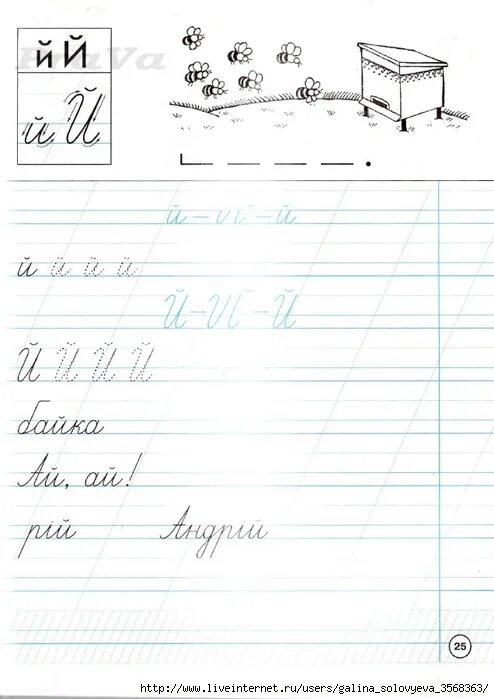 й Й
й Й
й – й
й й й й
Й – Й
Й Й Й Й
байка
Ай, ай!
рій Андрій
25
http://www.liveinternet.ru/users/galina_solovyeva_3568363/